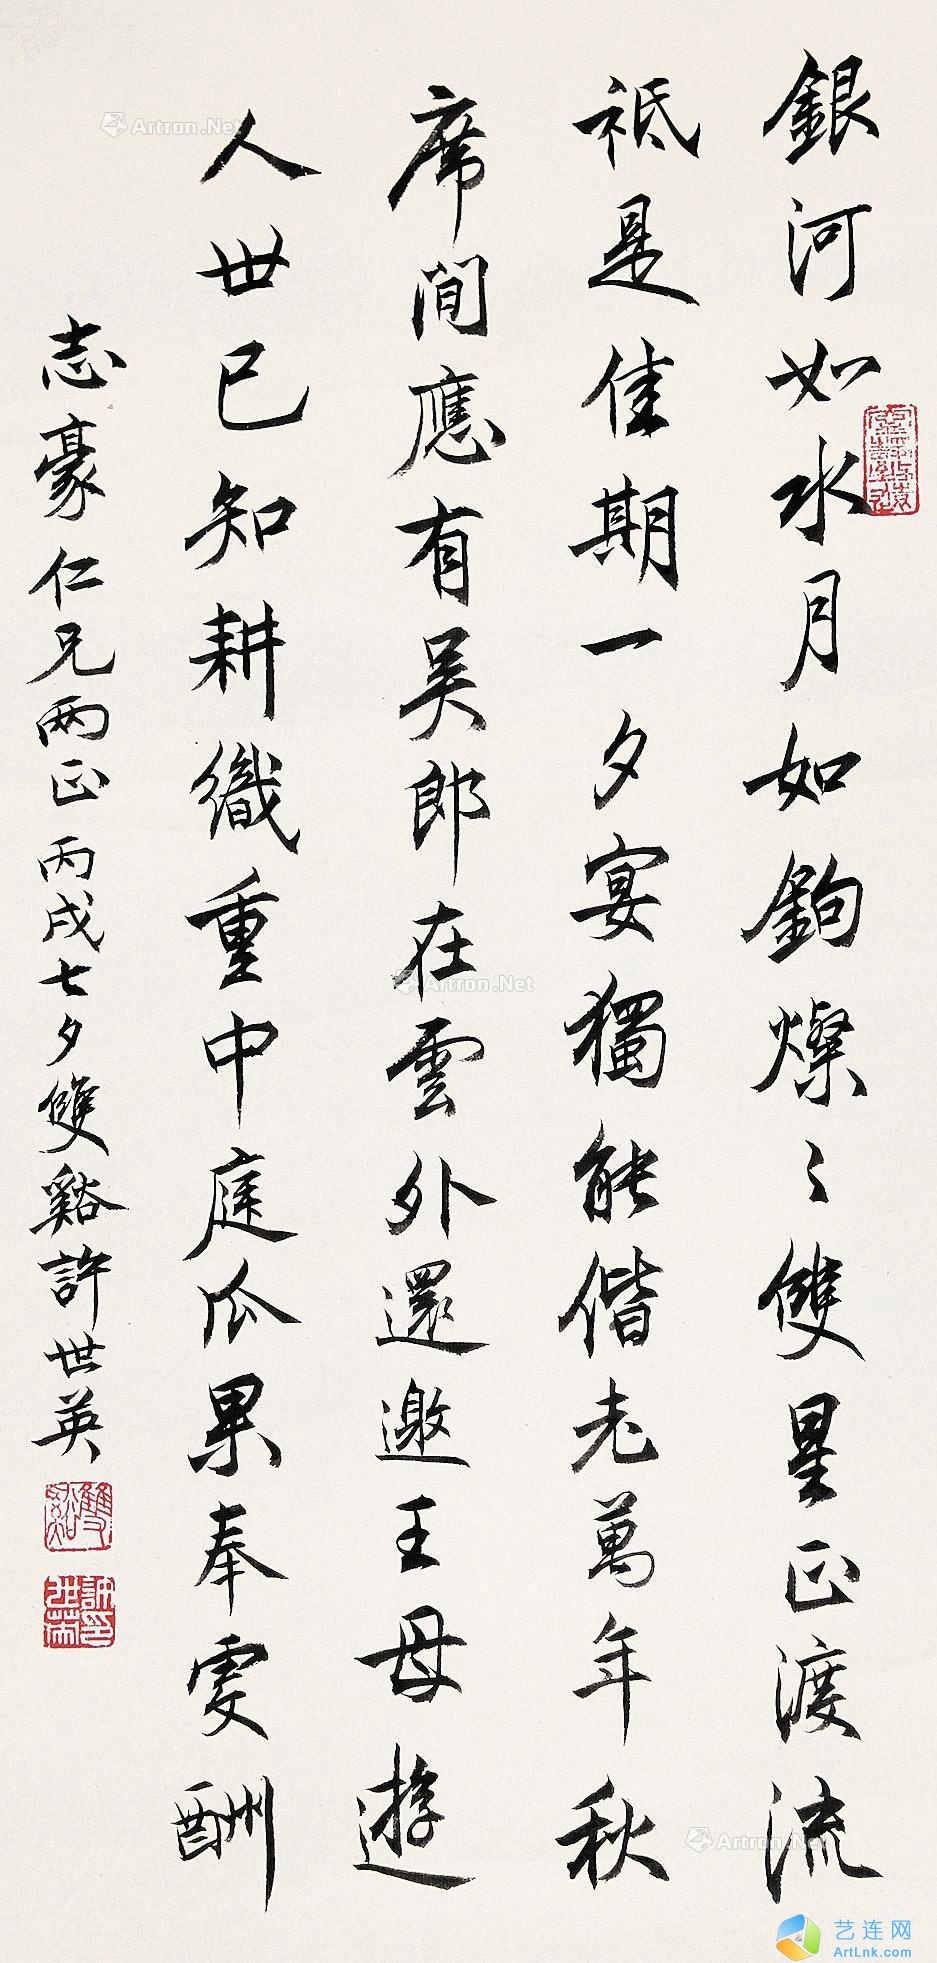 銀河如水月如鉤燦〻雙星正渡流
祇是佳期一夕宴獨能偕老萬年秋
席間應有吳郎在雲外還邀王母遊
人世已知耕織重中庭瓜果奉更酬
志豪仁兄两正丙戌七夕雙谿許世英
雙谿
許世英印
Artron.Net
Artron.Net
Artron.Net
艺连网
ArtLnk.com